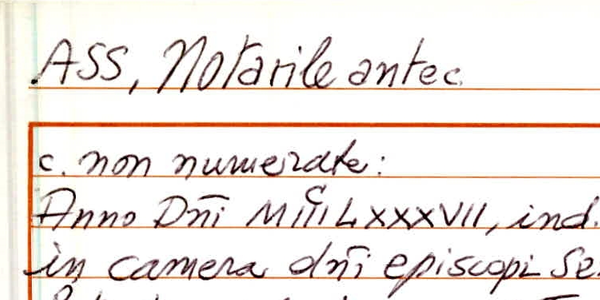 ASS, Notarile antec
c. non numerate:
Anno Dn̄i MIIIᶜLXXXVII, ind.
in camera dn̄i episcopi Se.